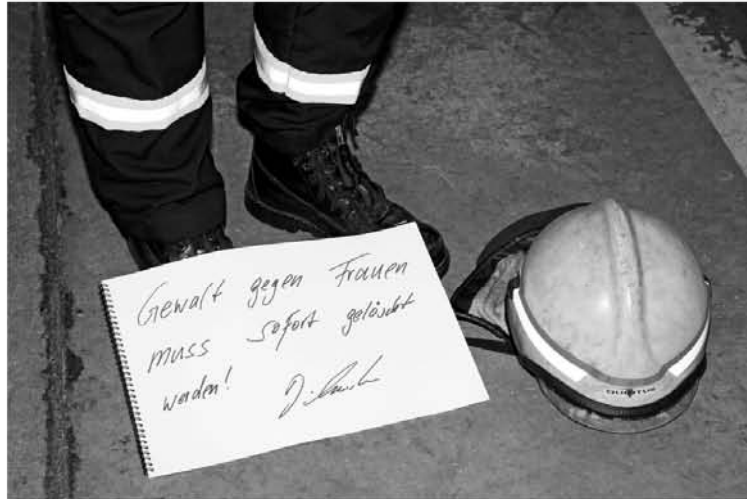 Gewalt gegen Frauen
muss sofort gelöscht
werden!